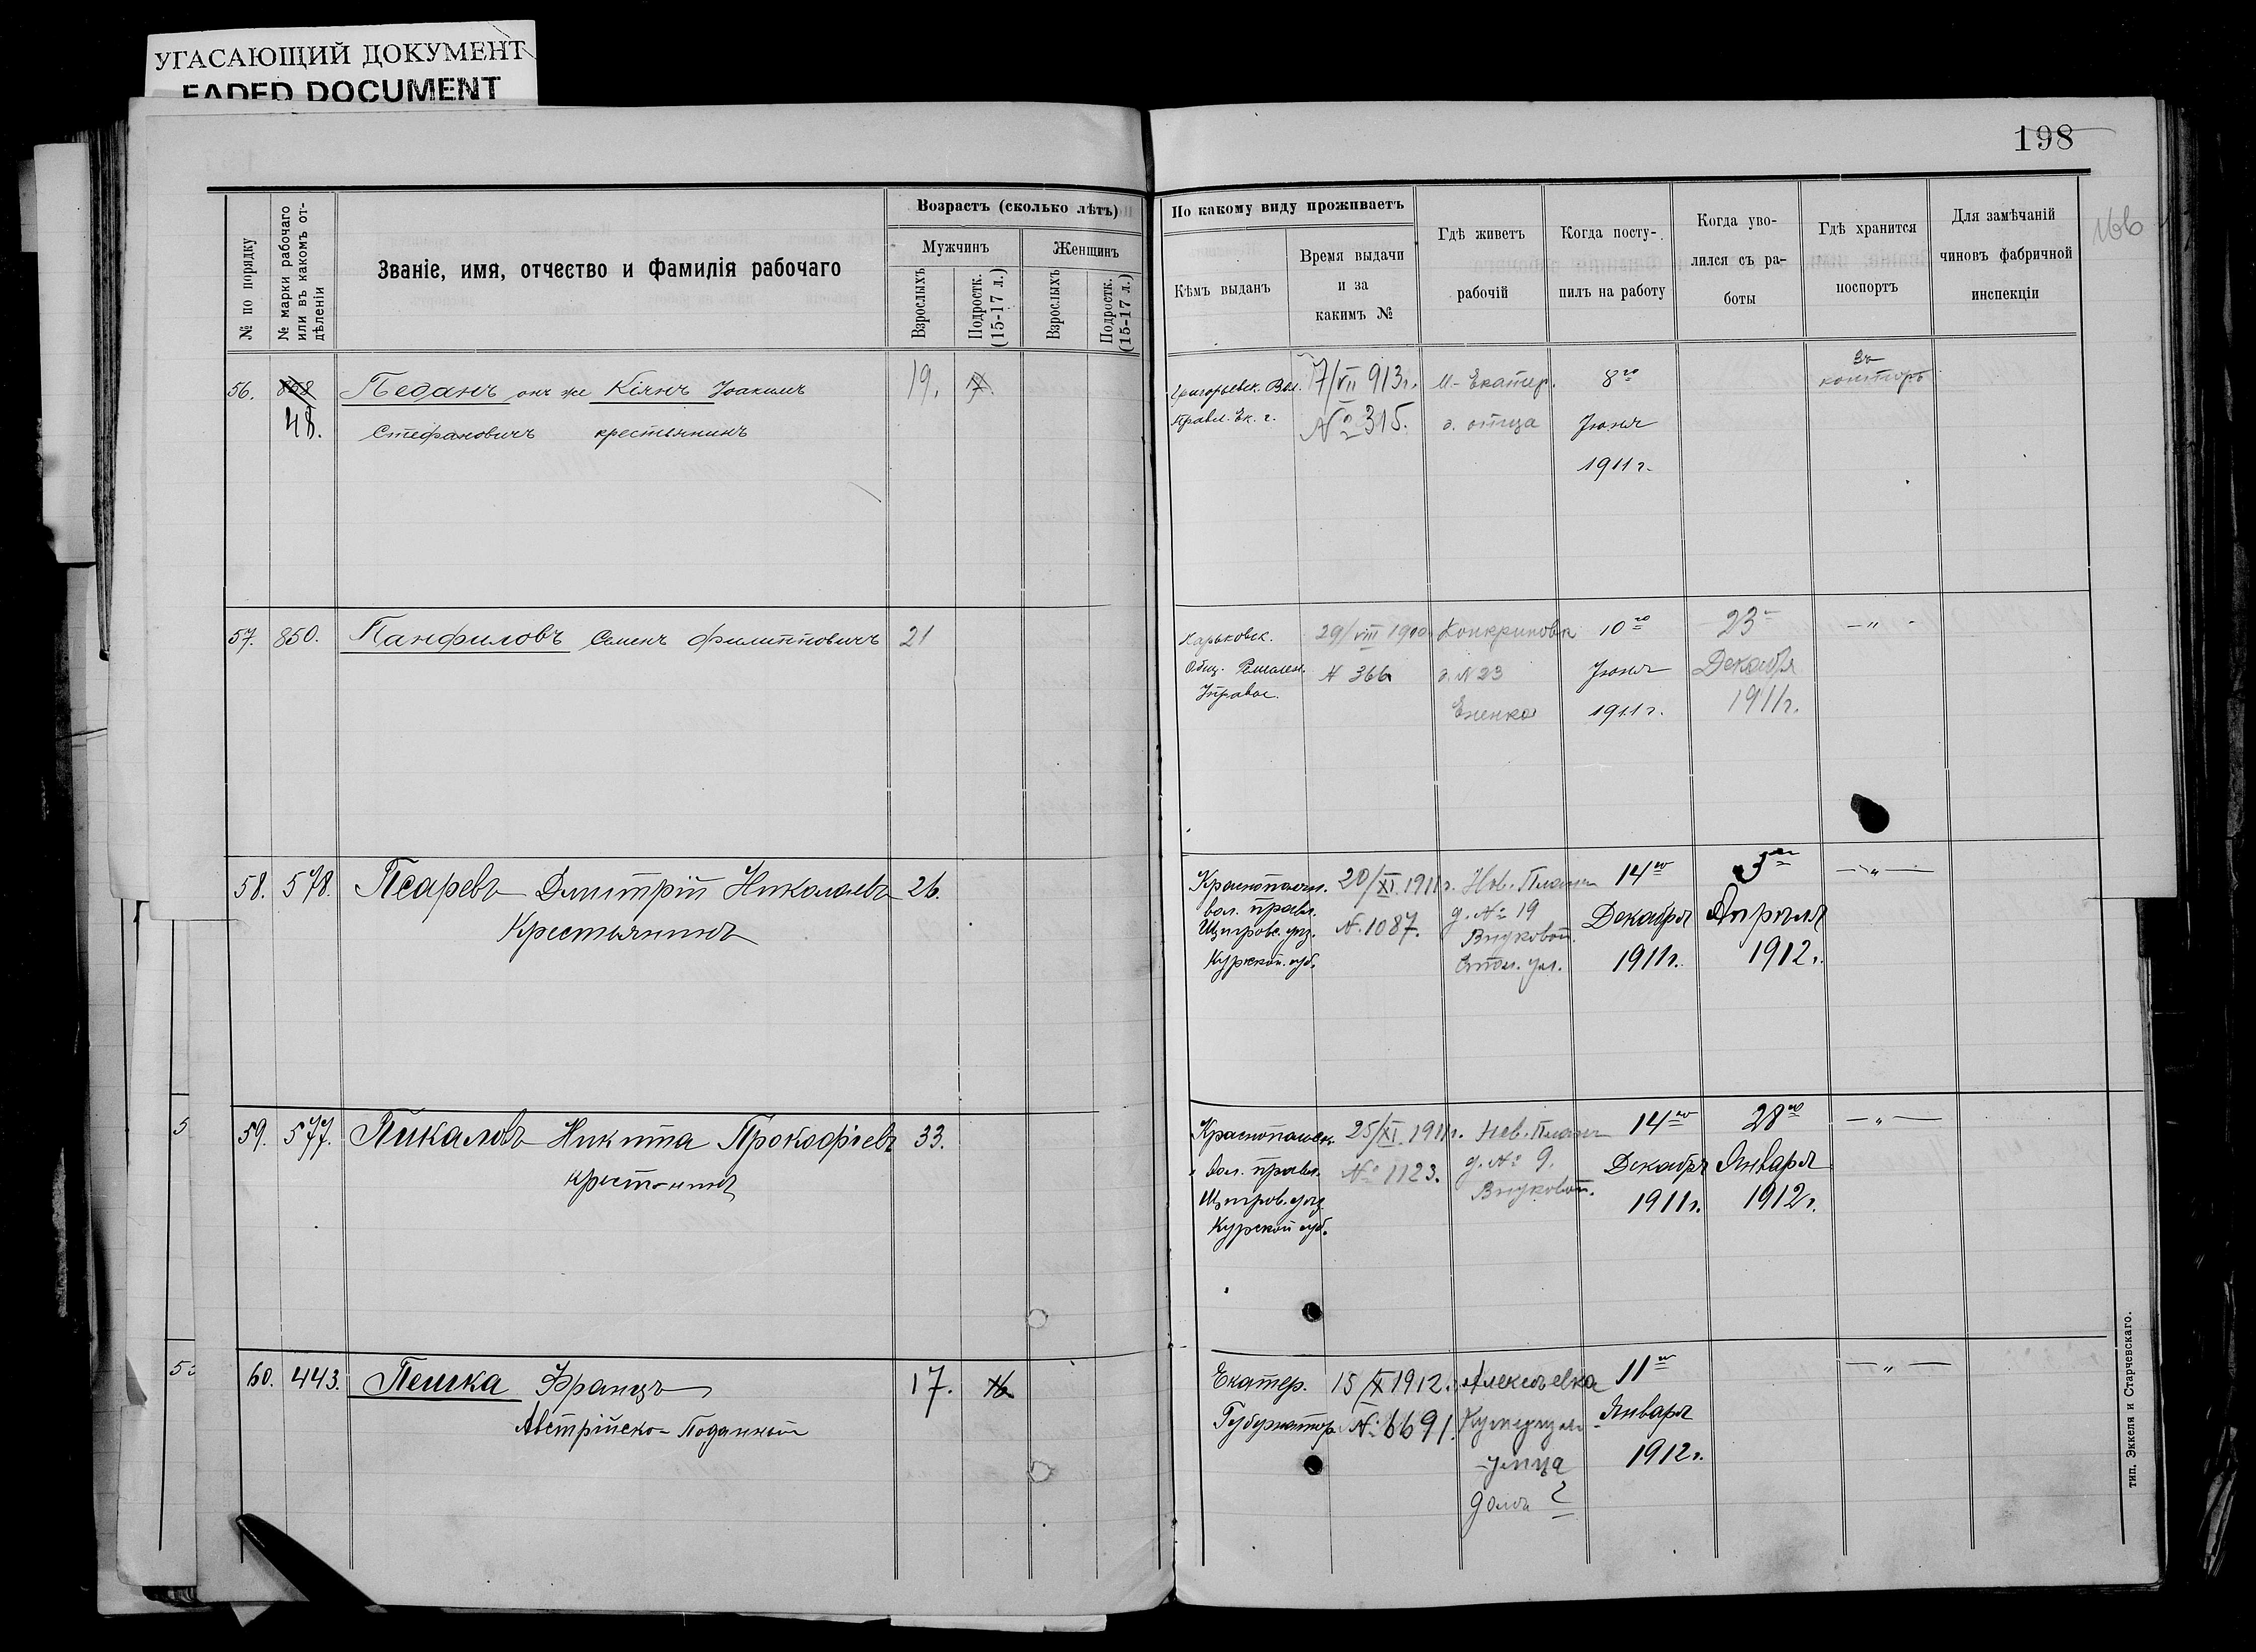 УГАСАЮЩИЙ ДОКУМЕНТ
FADED DOCUMENT
198
166
№ по порядку
№ марки рабочаго
или въ какомъ от-
дѣленіи
Званіе, имя, отчество и Фамилія рабочаго
Возрастъ (сколько лѣтъ)
Мужчинъ
Женщинъ
Взрослыхъ
Подростк.
(15-17 л.)
Взрослыхъ
Подростк.
(15-17 л.)
По какому виду проживаетъ
Кѣмъ выданъ
Время выдачи
и за
какимъ №
Гдѣ живетъ
рабочій
Когда посту-
пилъ на работу
Когда уво-
лился съ ра-
боты
Гдѣ хранится
поспортъ
Для замѣчаній
чиновъ фабричной
инспекціи
56.
858
48.
Педанъ онъ же Кіянъ Іоакимъ
Стефановичъ крестьянинъ
19.
Григорьевск. Вол.
Правл. Ек. г.
7/VII 913г.
№ 315.
М-Екатер.
д. отца
8го
Іюня
1911 г.
Въ
конторѣ
57.
850.
Панфиловъ Семенъ Филипповичъ
21
Харьковск.
Общ. Ремеслен.
Управы.
29/VIII 1900
№ 366
д. №23
10го
Іюня
1911 г.
23
Декабря
1911г.
— " -
58.
578.
Псаревъ Дмитрій Николаевъ
Крестьянинъ
26.
вол. правл.
Щигровс. уѣз.
Курской. губ.
20/XI. 1911г.
№. 1087.
Нов. Планъ
д. № 19
Внуковой.
ул.
14го
Декабря
1911г.
3го
Апрѣля
1912г.
— " —
59.
577.
Пикаловъ Никита Прокофіевъ
крест-нинъ
33.
вол. правл.
Щигров. уѣз.
Курской губ.
25/XI. 1911г.
№ 1123.
Нов. Планъ
д. № 9.
Внуковой.
14го
Декабря
1911г.
28го
Января
1912г.
— " —
60.
443.
Пешка Францъ
Австрійско-Поданный
17.
16
Екатер.
Губернатор.
15/X 1912.
№ 6691.
Алексѣевка
улица
домъ 2
11го
Января
1912г.
— " —
5
тип. Эккеля и Старчевскаго.